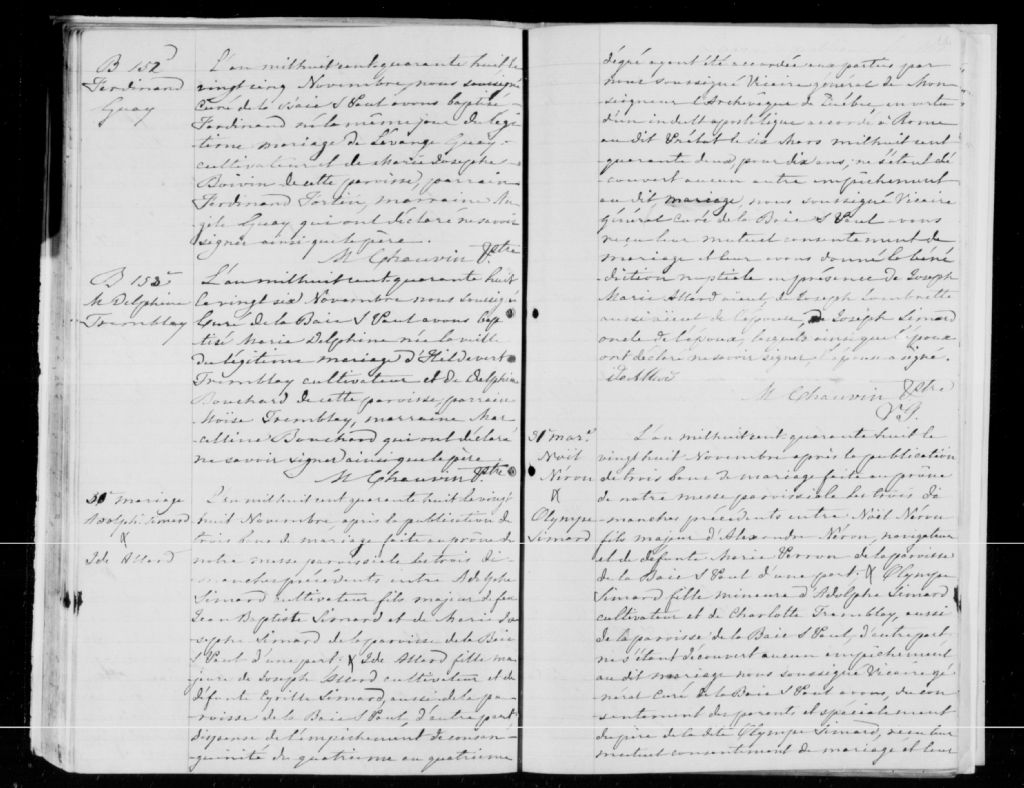 B 152
Ferdinand
Guay
L'an mil huit cent quarante huit le
vingt cinq Novembre, nous soussigné
Curé de la Baie S Paul avons baptisé
Ferdinand né le même jour du légi
time mariage de Lévange Guay
cultivateur et de Marie Josephe
Boivin de cette paroisse, parrain
Ferdinand Fortin, marraine An
gèle Guay qui ont déclaré ne savoir
signer ainsi que le père.
M Chauvin Ptre
B 153
M Delphine
Tremblay
L'an mil huit cent quarante huit
le vingt six Novembre nous soussigné
Curé de la Baie S Paul avons bap
tisé Marie Delphine née la veille
du légitime mariage d'Hildevert
Tremblay cultivateur et de Delphine
Bouchard de cette paroisse, parrain
Moïse Tremblay, marraine Mar
celline Bouchard qui ont déclaré
ne savoir signer ainsi que le père.
M Chauvin Ptre
30e mariage
Adolphe Simard
&
Ide Allard
L'an mil huit cent quarante huit le vingt
huit Novembre, après la publication de
trois bans de mariage faite au prône de
notre messe paroissiale les trois di
manches précédents entre Adolphe
Simard cultivateur fils majeur de feu
Jean Baptiste Simard et de Marie Jo
sephe Simard de la paroisse de la Baie
S Paul d'une part: & Ide Allard fille ma
jeure de Joseph Allard cultivateur et de
défunte Cyrille Simard, aussi de la pa
roisse de la Baie S Paul, d'autre part
dispense de l'empêchement de consan
guinité du quatrième au quatrième
dégré ayant été accordée aux parties par
nous soussigné Vicaire général de Mon
seigneur l'Archevêque de Québec, en vertu
d'un indult apostolique accordé à Rome
au dit Prélat le six Mars mil huit cent
quarante deux, pour dix ans; ne s'étant dé
couvert aucun autre empêchement
au dit mariage, nous soussigné Vicaire
général Curé de la Baie S Paul avons
reçu leur mutuel consentement de
mariage et leur avons donné la béné
diction nuptiale en présence de Joseph
Marie Allard aïeul, de Joseph
aussi aïeul de l'épouse, de Joseph Simard
oncle de l'époux, lesquels ainsi que l'époux
ont déclaré ne savoir signer, l'épouse a signé.
Ide Allard
M Chauvin Ptre
V.G.
31e mar.
Noël
Néron
&
Olympe
Simard
L'an mil huit cent quarante huit le
vingt huit Novembre après la publication
de trois bans de mariage faite au prône
de notre messe paroissiale les trois di
manches précédents entre Noël Néron
fils majeur d'Alexandre Néron, navigateur
et de défunte Marie Perron de la paroisse
de la Baie S Paul d'une part: & Olympe
Simard fille mineure d'Adolphe Simard
cultivateur et de Charlotte Tremblay, aussi
de la paroisse de la Baie S Paul, d'autre part,
ne s'étant découvert aucun empêchement
au dit mariage nous soussigné Vicaire gé
néral Curé de la Baie S Paul avons, du con
sentement des parents et spécialement
du père de la dite Olympe Simard, reçu leur
mutuel consentement de mariage et leur